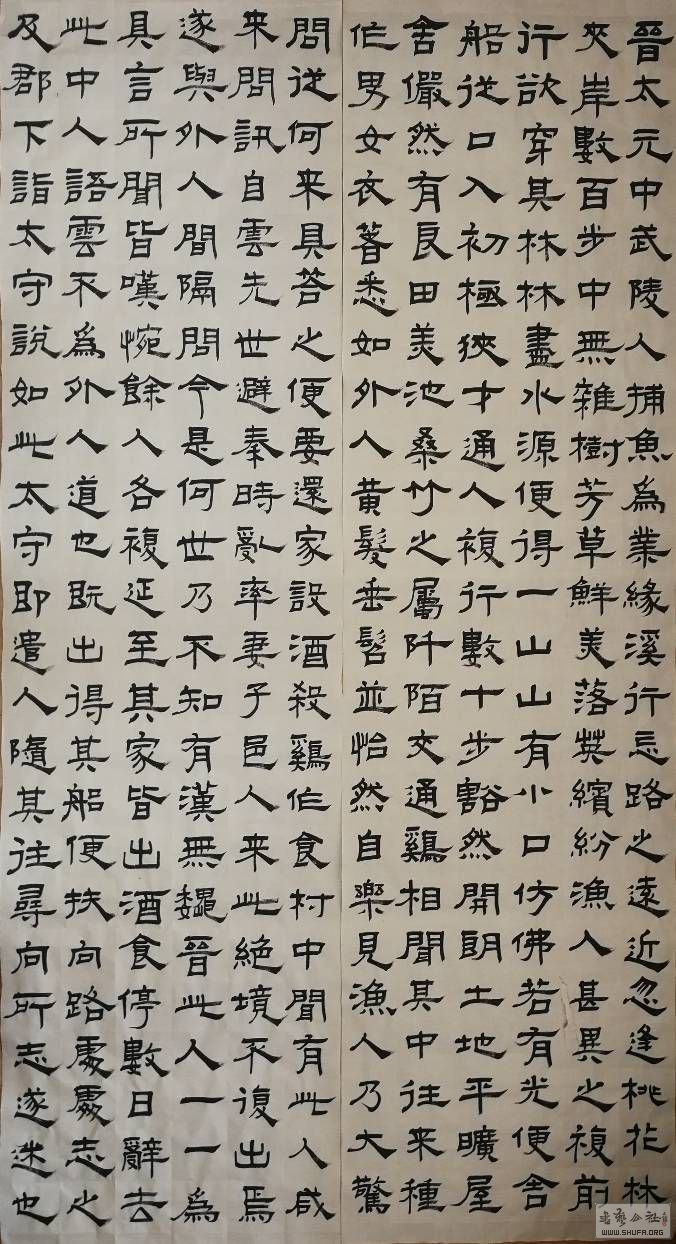 晉太元中武陵人捕魚為業緣溪行忘路之遠近忽逢桃花林
夾岸數百步中無雜樹芳草鮮美落英繽紛漁人甚異之複前
行欲穿其林林盡水源便得一山山有小口仿佛若有光便舍
船從口入初極狹才通人複行數十步豁然開朗土地平曠屋
舍儼然有良田美池桑竹之屬阡陌交通鷄相聞其中往来種
作男女衣著悉如外人黃髮垂髫並怡然自樂見漁人乃大驚
問從何来具答之便要還家設酒殺鷄作食村中聞有此人咸
来問訊自雲先世避秦時亂率妻子邑人来此絕境不復出焉
遂與外人間隔問今是何世乃不知有漢無魏晉此人一一為
具言所聞皆嘆惋餘人各複延至其家皆出酒食停數日辭去
此中人語雲不為外人道也既出得其船便扶向路處處志之
及郡下詣太守說如此太守即遣人隨其往尋向所志遂迷也
WWW.SHUFA.ORG